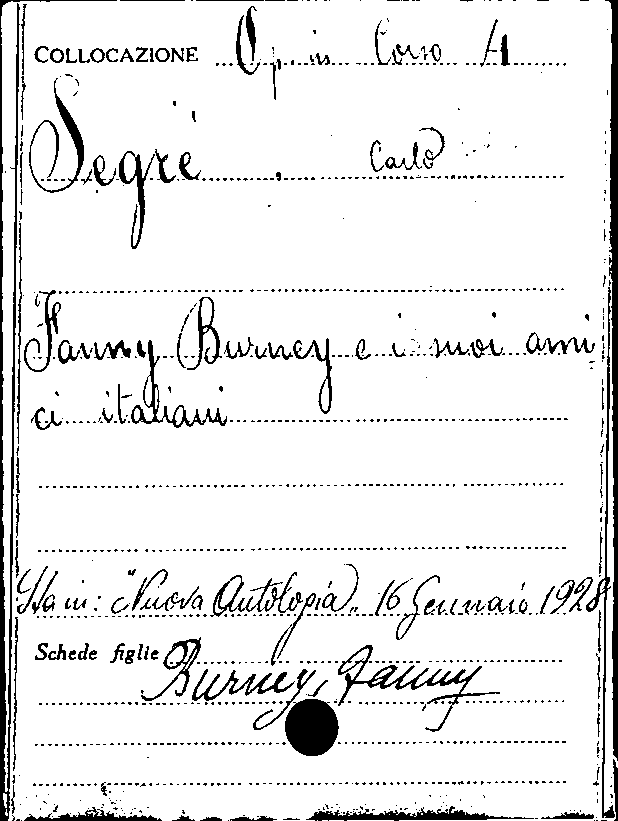 COLLOCAZIONE Op. in Corso A
Segrè Carlo
Fanny Burney e i suoi ami
ci italiani
Sta in: "Nuova Antologia„ 16 Gennaio 1928
Schede figlie
Burney, Fanny